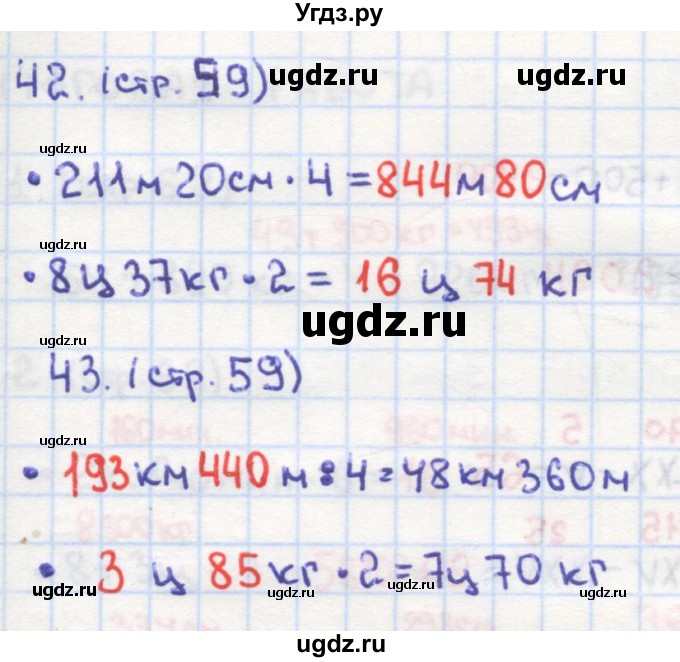 Угдз.ру
42. (стр. 59) ugdz.ru ugdz.ru
ugdz.ru ugdz.ru
• 211м 20см · 4 = 844м 80см
ugdz.ru
• 8ц 37кг · 2 = 16 ц 74 кг
ugdz.ru
43. (стр. 59)
ugdz.ru ugdz.ru
• 193км 440 м : 4 = 48км 360м
ugdz.ru
• 3 ц 85кг · 2 = 7ц 70 кг
ugdz.ru ugdz.ru
ugdz.ru